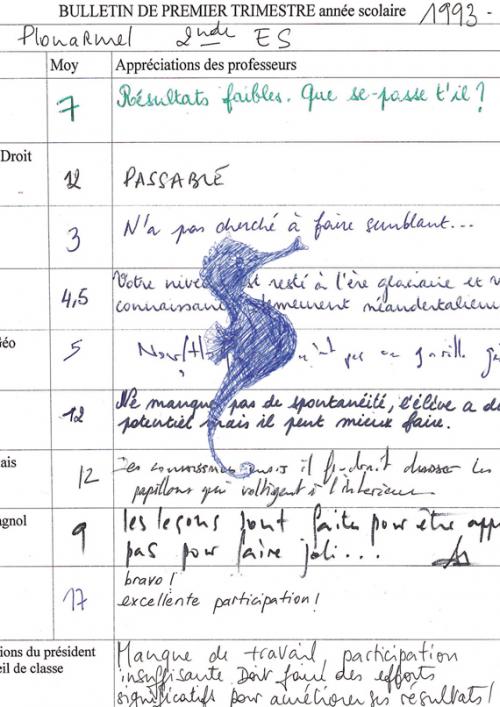 BULLETIN DE PREMIER TRIMESTRE année scolaire 1993 -
Plouarmel 2nde ES
Moy Appréciations des professeurs
7 Résultats faibles. Que se-passe t'il ?
Droit 12 PASSABLE
3 N'a pas cherché à faire semblant...
4,5 Votre resté à l'ère glaciaire et
néandertalienne
Géo 5
12 Ne manque pas de spontanéité, l'élève a
potentiel mais il peut mieux faire.
ais 12 mais il les
papillons qui voltigent à l'intérieur
agnol 9 les leçons sont faites pour être app
pas pour faire joli...
bravo !
17 excellente participation !
ions du président Manque de travail, participation
eil de classe insuffisante Doit faire des efforts
significatifs pour améliorer ses résultats !